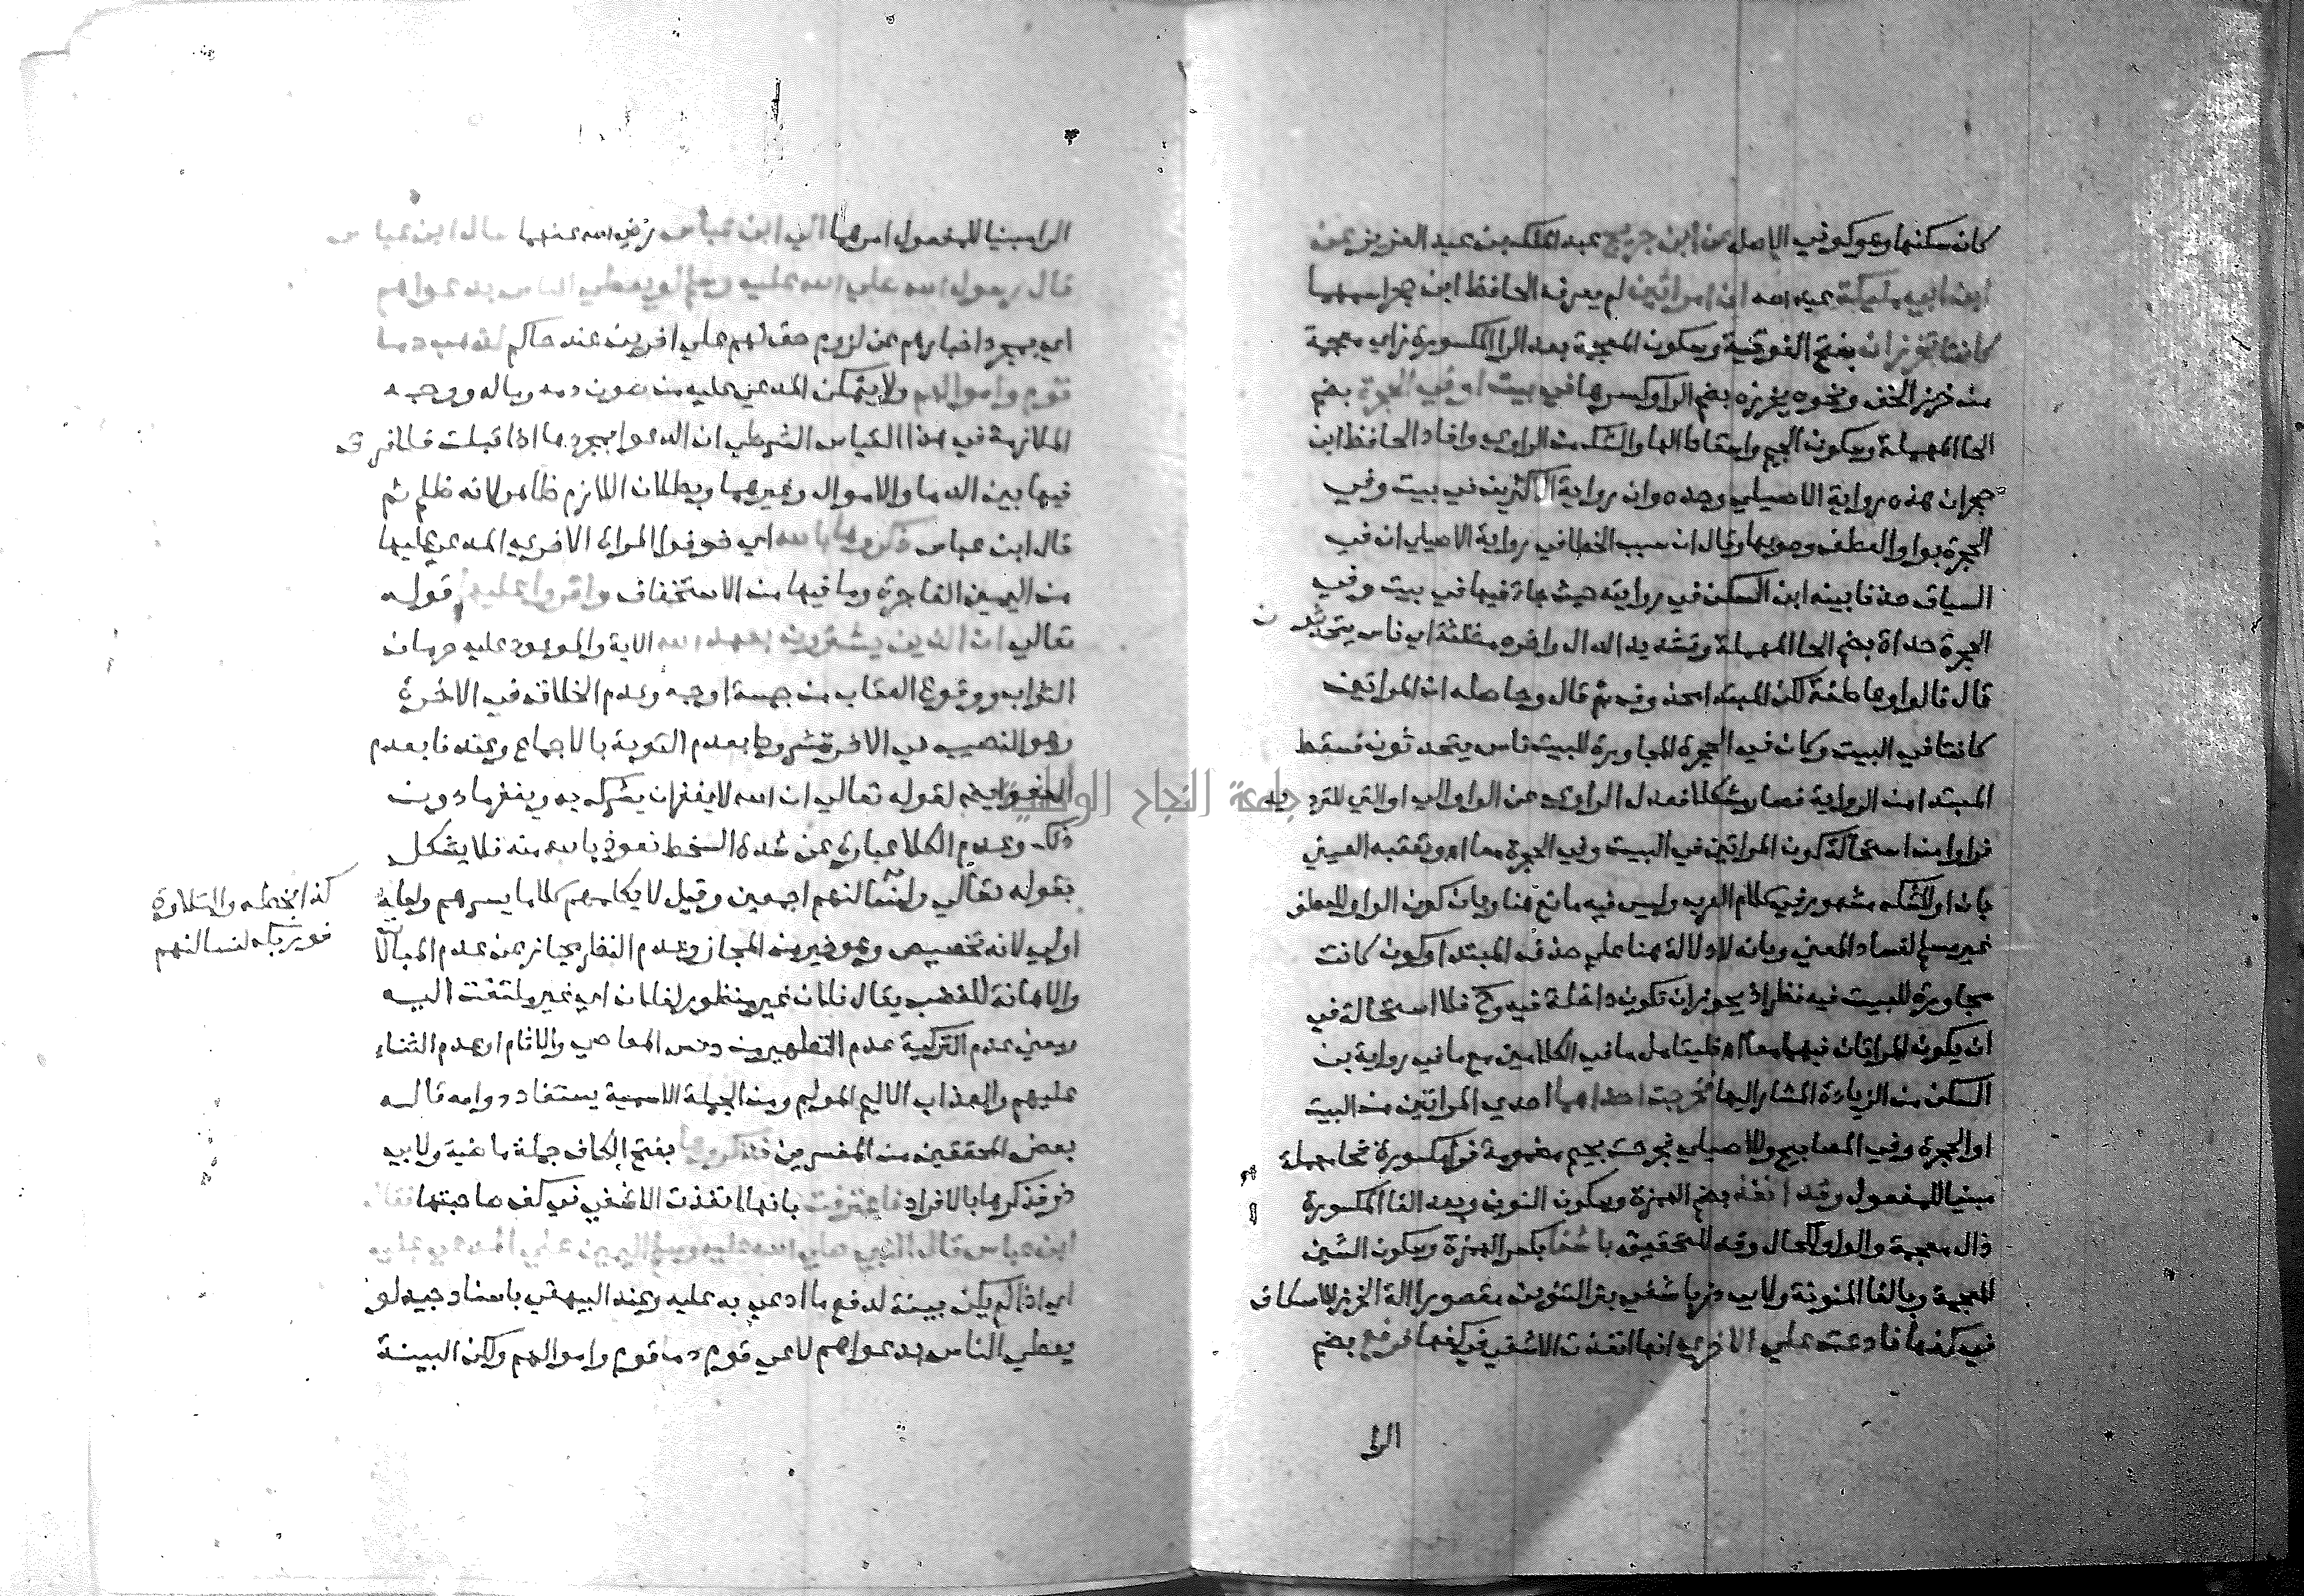 كان سكنها وهو كوفي الاصل عن ابن جريج عبد الملك بن عبد العزيز عن
ابن ابي مليكة عبد الله ان امراتين لم يعرف الحافظ ابن حجر اسمهما
كانتا تخرزان بفتح الفوقية وسكون المعجمة بعد الرا المكسورة زاي معجمة
من خرز الخف ونحوه يخرزه بضم الرا وكسرها في بيت او في الحجرة بضم
الحا المهملة وسكون الجيم واسقاط الها والشك من الراوي وافاد الحافظ ابن
حجر ان هذه رواية الاصيلي وحده وان رواية الاكثرين في بيت وفي
الحجرة بواو العطف وصوبها وقال ان سبب الخطا في رواية الاصيلي ان في
السياق حذفا بينه ابن السكن في روايته حيث جاء فيها في بيت وفي
الحجرة حداث بضم الحا المهملة وتشديد الدال واخره مثلثة اي ناس يتحدثون
قال فالواو عاطفة لكن المبتدا محذوف ثم قال وحاصله ان المراتين
كانتا في البيت وكان في الحجرة المجاورة للبيت ناس يتحدثون فسقط
المبتدا من الرواية فصار مشكلا فعدل الراوي عن الواو الي او التي للترديد
فرارا من استحالة كون المراتين في البيت وفي الحجرة معا اهـ وتعقبه العيني
بان او للشك مشهور في كلام العرب وليس فيه مانع هنا وبان كون الواو للعطف
غير مسلم لفساد المعني وبانه لا دلالة هنا علي حذف المبتدا وكون كانت
مجاورة للبيت فيه نظر اذ يجوز ان تكون داخلة فيه وح فلا استحالة في
ان يكون المراتان فيهما معا اهـ فليتامل ما في الكلامين مع ما في رواية بن
السكن من الزيادة المشار اليها فخرجت احداهما احدي المراتين من البيت
او الحجرة وفي المصابيح وللاصيلي فجرحت بجيم مضمومة فرا مكسورة فحا مهملة
مبنيا للمفعول وقد انفذ بضم الهمزة وسكون النون وبعد الفا المكسورة
ذال معجمة والواو للحال وقد للتحقيق باشفا بكسر الهمزة وسكون الشين
المعجمة وبالفا المنونة ولابي ذر باشفي بترك التنوين مقصورا الة الخرز للاسكاف
في كفها فادعت علي الاخري انها انفذت الاشفي في كفها فرفع بضم
الرا
الرا مبنيا للمفعول امرهما الي ابن عباس رضي الله عنهما فقال ابن عباس
قال رسول الله صلي الله عليه وسلم لو يعطي الناس بدعواهم
اي بمجرد اخبارهم عن لزوم حق لهم علي اخرين عند حاكم لذهب دما
قوم واموالهم ولا يتمكن المدعي عليه من صون دمه وماله ووجه
الملازمة في هذا القياس الشرطي ان الدعوا بمجردها اذا قبلت فلا فرق
فيها بين الدما والاموال وغيرهما وبطلان اللازم ظاهر لانه ظلم ثم
قال ابن عباس ذكروها بالله اي خوفوا المراة الاخري المدعي عليها
من اليمين الفاجرة وما فيها من الاستخفاف واقروا عليها قوله
تعالي ان الذين يشترون بعهد الله الاية والموعود عليه حرمان
الثواب ووقوع العقاب من خمسة اوجه وعدم الخلاق في الاخرة
وهو النصيب في الاخرة مشروط بعدم التوبة بالاجماع وعندنا بعدم
العفو ايضا لقوله تعالي ان الله لا يغفر ان يشرك به ويغفر ما دون
ذلك وعدم الكلام عبارة عن شدة السخط نعوذ بالله منه فلا يشكل
بقوله تعالي ولنسالنهم اجمعين وقيل لا يكلمهم كلاما يسرهم ولعله
اولي لانه تخصيص وهو خير من المجاز وعدم النظر مجاز عن عدم المبالاة
والاهانة للغضب يقال فلان غير منظور لفلان اي غير ملتفت اليه
ومعني عدم التزكية عدم التطهير من دنس المعاصي والاثام او عدم الثناء
عليهم والعذاب الاليم المولم ومن الجملة الاسمية يستفاد دوامه قاله
بعض المحققين من المفسرين فذكروها بفتح الكاف جملة ماضية ولابي
ذر فذكرها بالافراد فاعترفت بانها انفذت الاشفي في كف صاحبتها فقال
ابن عباس قال النبي صلي الله عليه وسلم اليمين علي المدعي عليه
اي اذا لم يكن بينة لدفع ما ادعي به عليه وعند البيهقي باسناد جيد لو
يعطي الناس بدعواهم لادعي قوم دما قوم واموالهم ولكن البينة
كذا بخطه والتلاوة
فوربك لنسالنهم
جامعة النجاح الوطنية